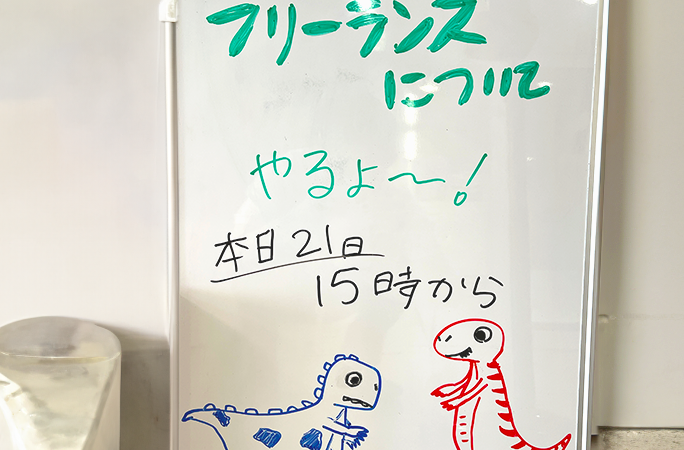 フリーランス
について
やるよ〜!
本日21日
15時から